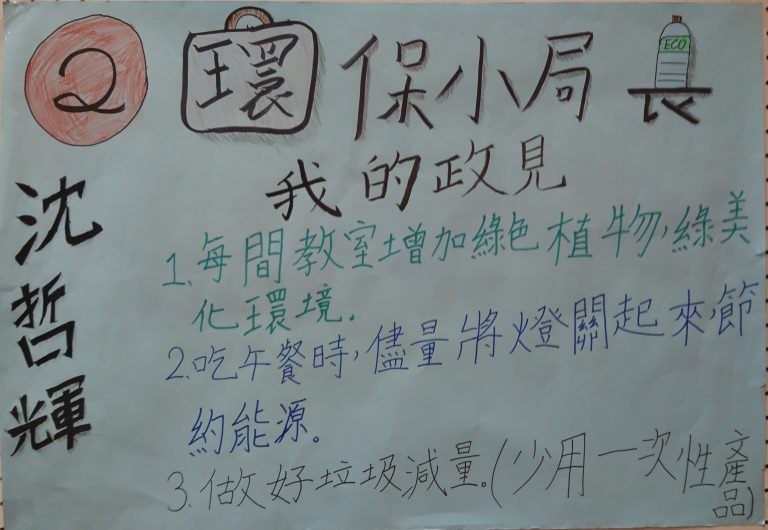 2
環保小局長
ECO
我的政見
沈哲輝
1.每間教室增加綠色植物,綠美
化環境。
2.吃午餐時,儘量將燈關起來,節
約能源。
3.做好垃圾減量。(少用一次性產品)